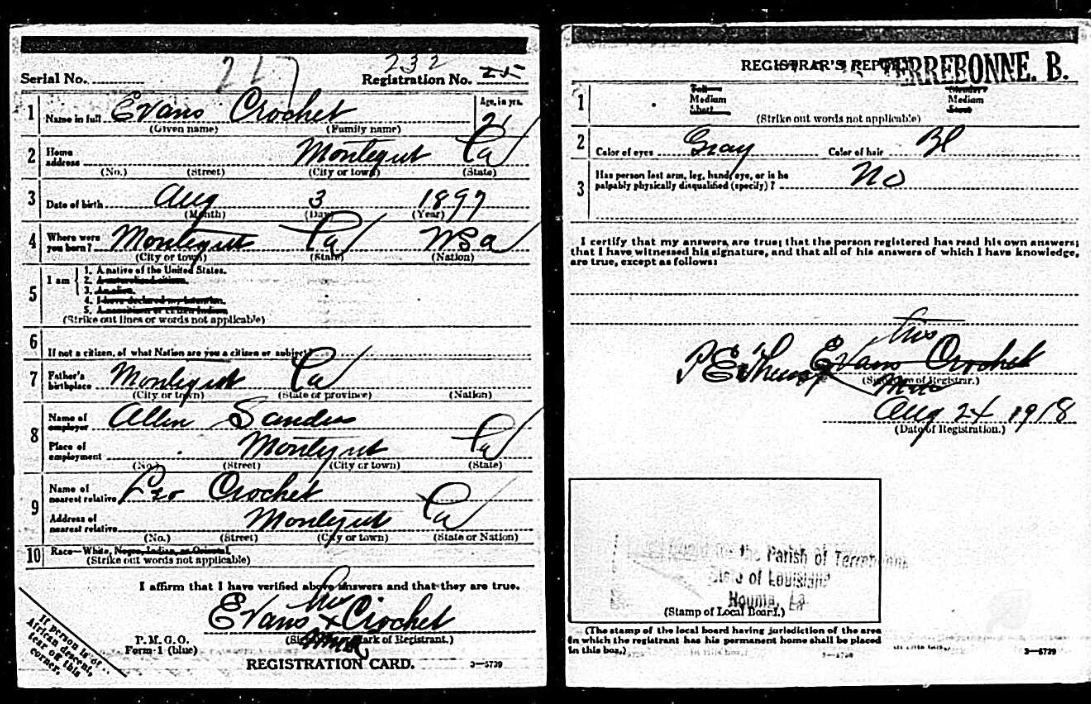 Serial No. 217 Registration No. 232
1 Name in full Evans Crochet Age, in yrs. 21
(Given name) (Family name)
2 Home address Montegut La
(No.) (Street) (City or town) (State)
3 Date of birth Aug 3 1897
(Month) (Day) (Year)
4 Where were you born? Montegut La USA
(City or town) (State) (Nation)
5 I am
1. A native of the United States.
2. A naturalized citizen.
3. An alien.
4. I have declared my intention.
5. A noncitizen or citizen Indian.
(Strike out lines or words not applicable)
6 If not a citizen, of what Nation are you a citizen or subject?
7 Father's birthplace Montegut La
(City or town) (State or province) (Nation)
8 Name of employer Allen Sanders
Place of employment Montegut La
(No.) (Street) (City or town) (State)
9 Name of nearest relative Leo Crochet
Address of nearest relative Montegut La
(No.) (Street) (City or town) (State or Nation)
10 Race—White, Negro, Indian, or Oriental.
(Strike out words not applicable)
I affirm that I have verified above answers and that they are true.
his
Evans x Crochet
(Signature or mark of Registrant.)
mark
P. M. G. O.
Form 1 (blue)
REGISTRATION CARD. 3—5739
If person is of African descent, tear on this corner.
REGISTRAR'S REPORT
TERREBONNE. B.
1 Tall Medium Short Slender Medium Stout
(Strike out words not applicable)
2 Color of eyes Gray Color of hair Bl
3 Has person lost arm, leg, hand, eye, or is he palpably physically disqualified (specify)? No
I certify that my answers, are true; that the person registered has read his own answers;
that I have witnessed his signature, and that all of his answers of which I have knowledge,
are true, except as follows:
his
Evans Crochet
(Signature of Registrar.)
Aug 24 1918
(Date of Registration.)
for the Parish of Terrebonne
State of Louisiana
Houma, La
(Stamp of Local Board.)
(The stamp of the local board having jurisdiction of the area
in which the registrant has his permanent home shall be placed
in this box.)
3—5739